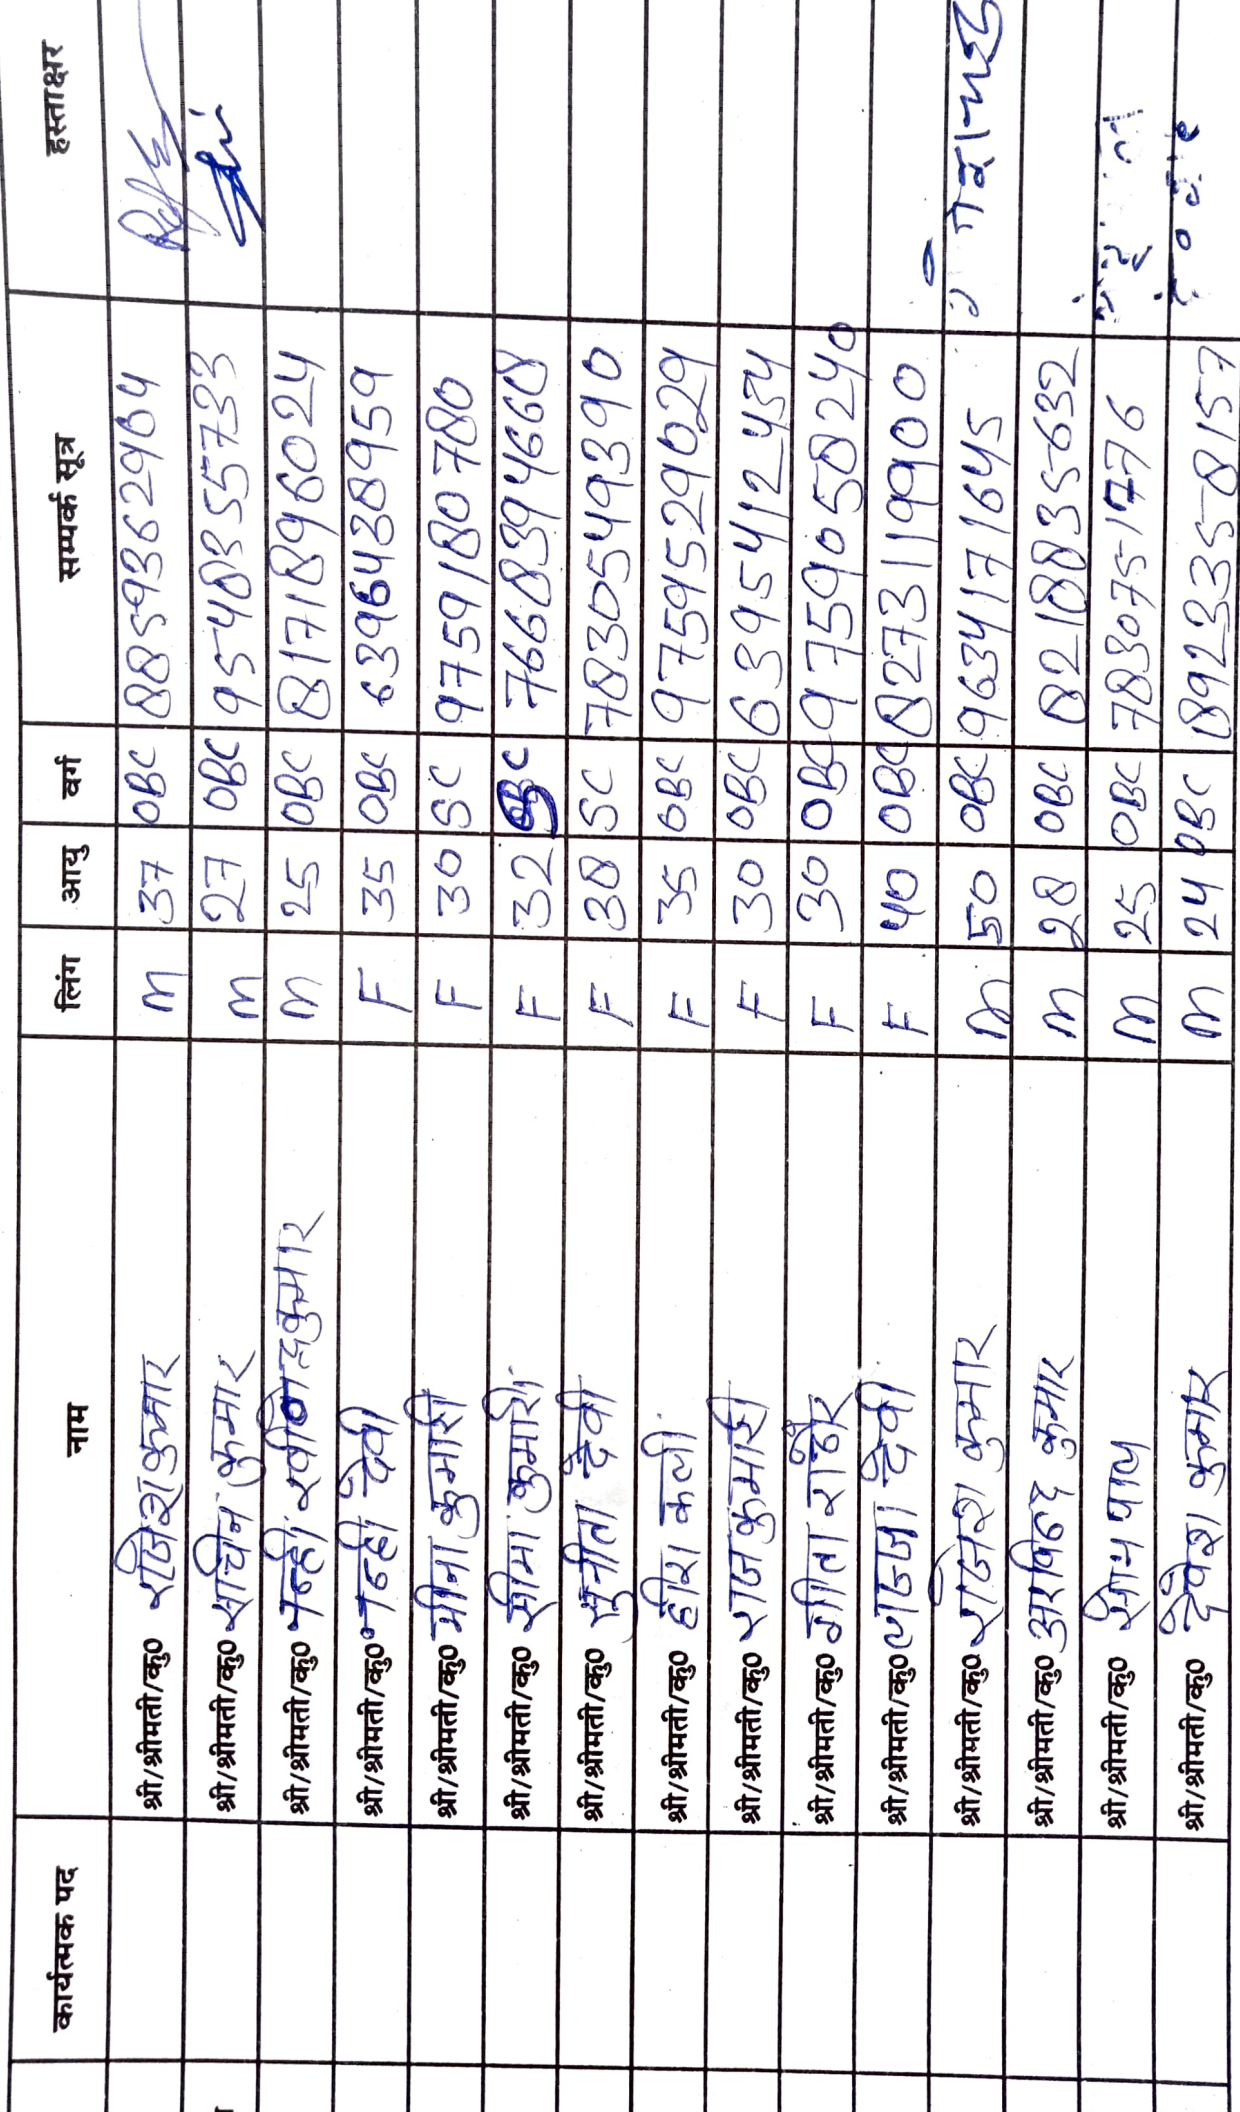 कार्यत्मक पद नाम लिंग आयु वर्ग सम्पर्क सूत्र हस्ताक्षर
श्री/श्रीमती/कु0 राजेश कुमार M 37 OBC 8859362964
श्री/श्रीमती/कु0 सचिन कुमार M 27 OBC 9548355733
श्री/श्रीमती/कु0 कुमार M 25 OBC 8171896024
श्री/श्रीमती/कु0 नन्ही देवी F 35 OBC 6396438959
श्री/श्रीमती/कु0 मीना कुमारी F 30 SC 9759180780
श्री/श्रीमती/कु0 सीमा कुमारी F 32 7668394668
श्री/श्रीमती/कु0 सुनीता देवी F 38 SC 7830549390
श्री/श्रीमती/कु0 हीरा कली F 35 OBC 9759529029
श्री/श्रीमती/कु0 राज कुमारी F 30 OBC 6395412434
श्री/श्रीमती/कु0 गीता राठौर F 30 OBC 9759058240
श्री/श्रीमती/कु0 लज्जा देवी F 40 OBC 8273119900
श्री/श्रीमती/कु0 राजेश कुमार M 50 OBC 9634171645
श्री/श्रीमती/कु0 कुमार M 28 OBC 8218835632
श्री/श्रीमती/कु0 पाल M 25 OBC 7830751776
श्री/श्रीमती/कु0 देवेश कुमार M 24 OBC 8923358157